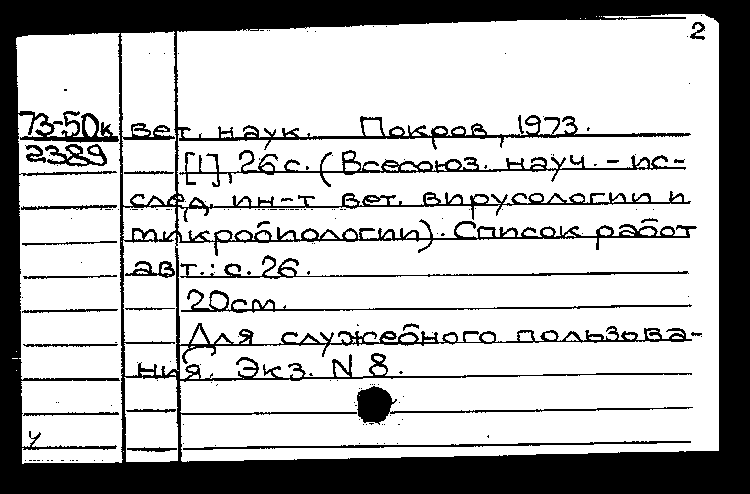 2
73-50к вет. наук. Покров, 1973.
2389 [1], 26 с. (Всесоюз. науч. - ис-
след. ин-т вет. вирусологии и
микробиологии). Список работ
авт.: с. 26.
20 см.
Для служебного пользова-
ния. Экз. N 8.